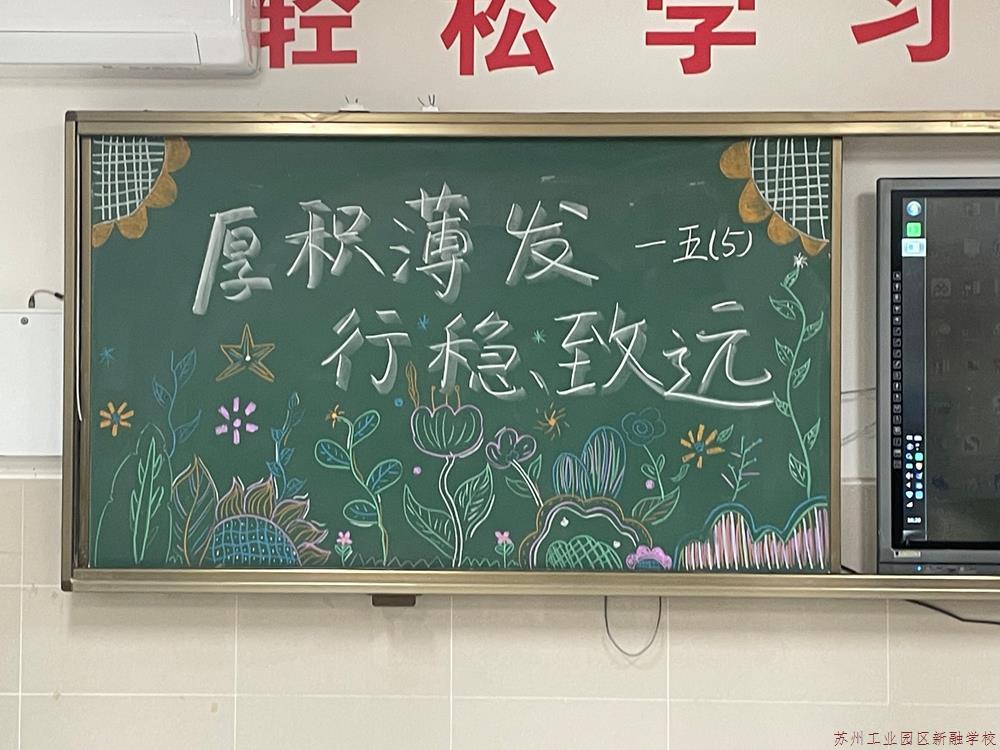 轻松学习
厚积薄发
一五(5)
行稳致远
苏州工业园区新融学校